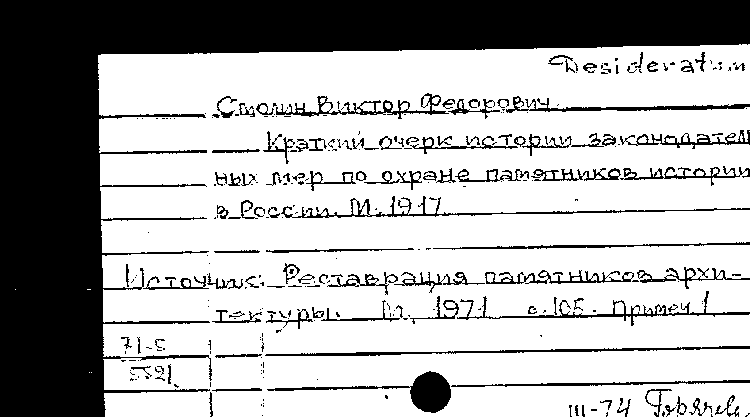 Desideratum
Столин Виктор Федорович
Краткий очерк истории законодатель
ных мер по охране памятников истории
в России. М. 1917
Источник: Реставрация памятников архи-
тектуры. М. 1971 с. 105. Примеч. 1
71-5
5521
III-74